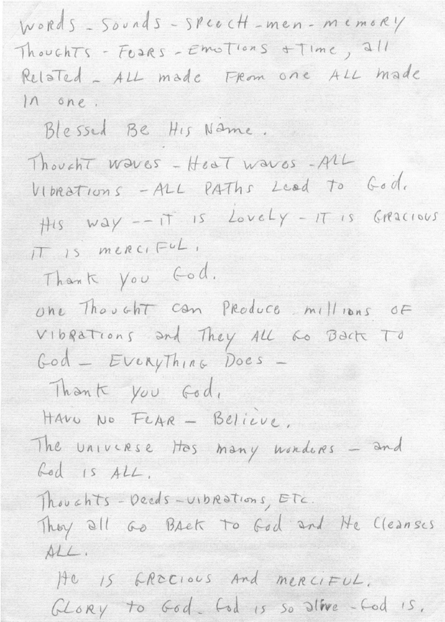 Words - Sounds - Speech - men - memory
Thoughts - Fears - Emotions + Time, all
Related - ALL made From one ALL made
In one.
Blessed Be His Name.
Thought waves - Heat waves - ALL
VIBRATIONS - ALL PATHS Lead to God.
His way -- IT IS Lovely - IT IS Gracious
IT IS mERCIFUL.
Thank You God.
one Thought can Produce millions OF
VIBRATIONS and They ALL Go Back To
God - EVERYTHING Does -
Thank You God.
HAVE NO FEAR - Believe.
The universe Has many wonders - and
God IS ALL.
Thoughts - Deeds - VIBRATIONS, ETC.
They all Go BAck To God and He Cleanses
ALL.
He IS Gracious And MERCIFUL.
GLORY to God. God is so alive - God is.